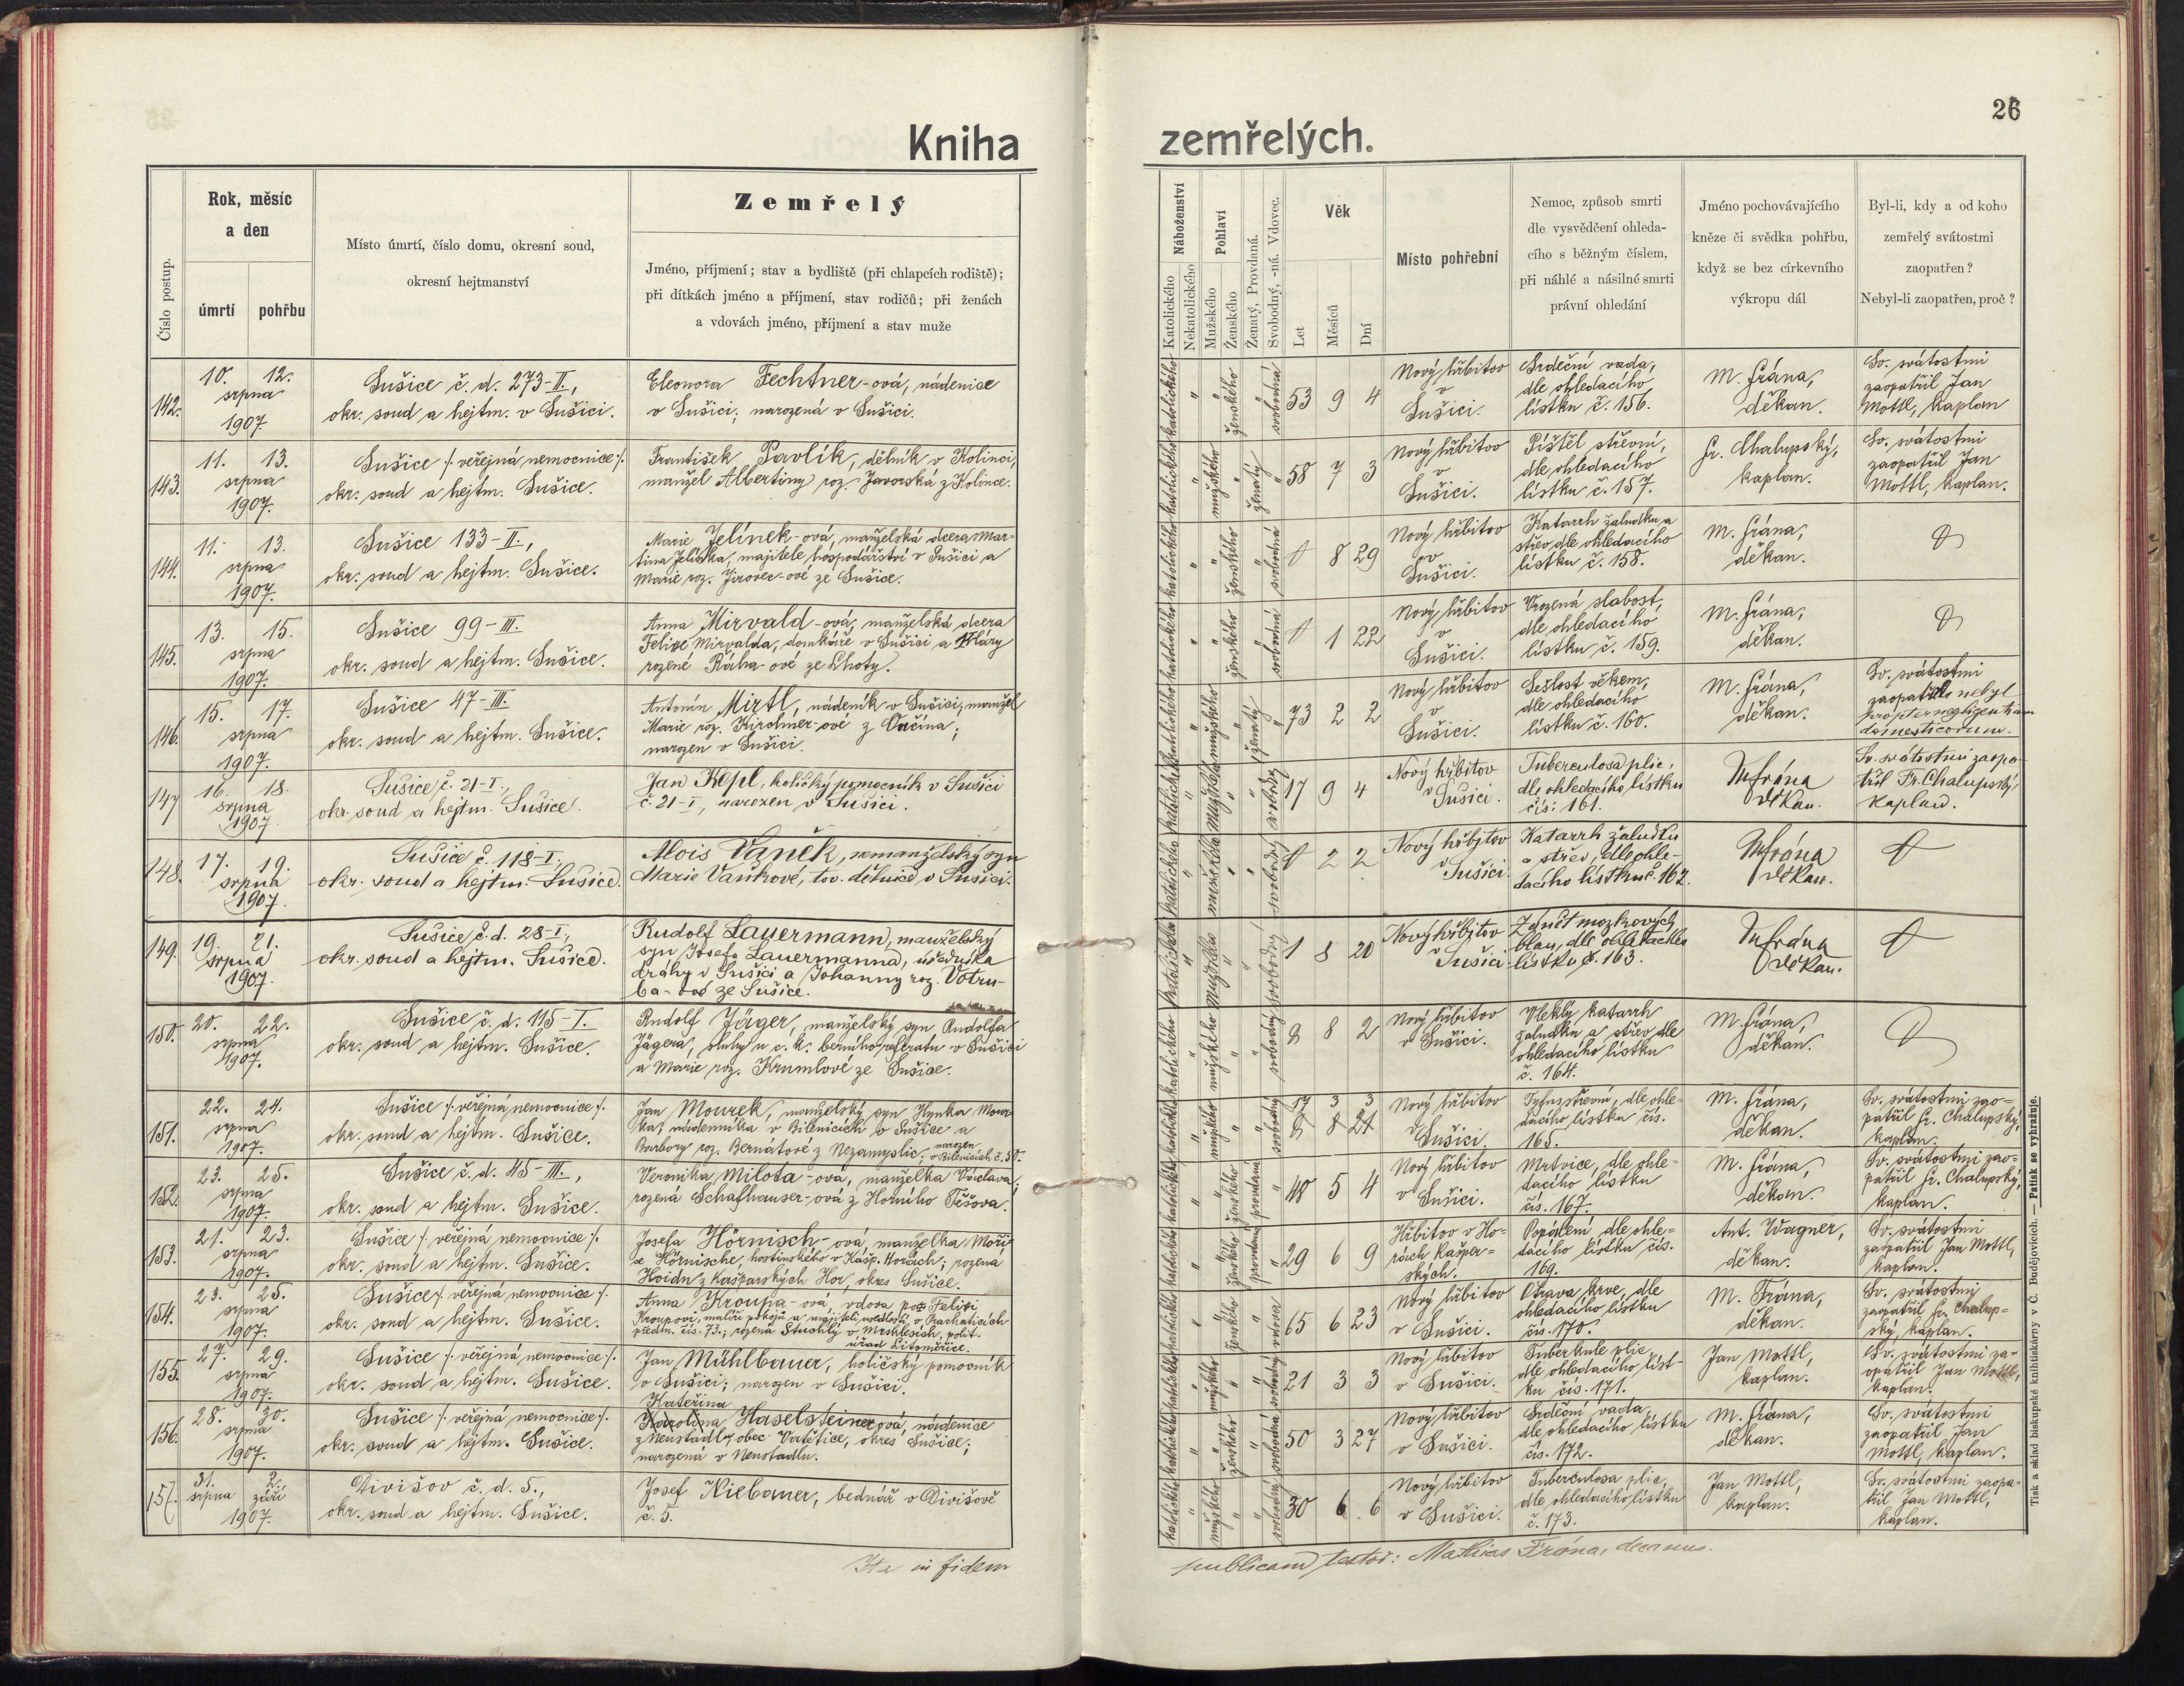 26
Kniha zemřelých.
Číslo postup.
Rok, měsíc
a den
úmrtí
pohřbu
Místo úmrtí, číslo domu, okresní soud,
okresní hejtmanství
Zemřelý
Jméno, příjmení; stav a bydliště (při chlapcích rodiště);
při dítkách jméno a příjmení, stav rodičů; při ženách
a vdovách jméno, příjmení a stav muže
Náboženství
Katolického
Nekatolického
Pohlaví
Mužského
Ženského
Ženatý, Provdaná.
Svobodný, -ná. Vdovec.
Věk
Let
Měsíců
Dní
Místo pohřební
Nemoc, způsob smrti
dle vysvědčení ohleda-
cího s běžným číslem,
při náhlé a násilné smrti
právní ohledání
Jméno pochovávajícího
kněze či svědka pohřbu,
když se bez církevního
výkropu dál
Byl-li, kdy a od koho
zemřelý svátostmi
zaopatřen?
Nebyl-li zaopatřen, proč?
142.
10. 12.
srpna
1907.
Sušice č. d. 273-II.,
okr. soud a hejtm. v Sušici.
Eleonora Fechtner-ová, nádenice
v Sušici; narozená v Sušici.
katolického
ženského
svobodná
53 9 4
Nový hřbitov
v
Sušici.
Srdeční vada,
dle ohledacího
lístku č. 156.
M. Frána,
děkan.
Sv. svátostmi
zaopatřil Jan
Mottl, kaplan
143.
11. 13.
srpna
1907.
Sušice /: veřejná nemocnice :/.
okr. soud a hejtm. Sušice.
František Pavlík, dělník v Kolinci,
manžel Albertiny roz. Javorská z Kolince.
katolického
mužského
ženatý
58 7 3
Nový hřbitov
v
Sušici.
Píštěl střevní,
dle ohledacího
lístku č. 157.
Fr. Chalupský,
kaplan.
Sv. svátostmi
zaopatřil Jan
Mottl, kaplan.
144.
11. 13.
srpna
1907.
Sušice 133-II.,
okr. soud a hejtm. Sušice.
Marie Jelínek-ová, manželská dcera Mar-
tina Jelínka, majitele hospodářství v Sušici a
Marie roz. Jirovec-ové ze Sušice.
katolického
ženského
svobodná
8 29
Nový hřbitov
v
Sušici.
Katarrh žaludku a
střev dle ohledacího
lístku č. 158.
M. Frána,
děkan.
145.
13. 15.
srpna
1907.
Sušice 99-III.
okr. soud a hejtm. Sušice.
Anna Mirvald-ová, manželská dcera
Felixe Mirvalda, domkáře v Sušici a Kláry
rozené Ráha-ové ze Lhoty.
katolického
ženského
svobodná
1 22
Nový hřbitov
v
Sušici.
Vrozená slabost,
dle ohledacího
lístku č. 159.
M. Frána,
děkan.
146.
15. 17.
srpna
1907.
Sušice 47-III.
okr. soud a hejtm. Sušice.
Antonín Mirtl, nádeník v Sušici, manžel
Marie roz. Kirchner-ové z
narozen v Sušici.
katolického
mužského
ženatý
73 2 2
Nový hřbitov
v
Sušici.
Sešlost věkem,
dle ohledacího
lístku č. 160.
M. Frána,
děkan.
Sv. svátostmi
zaopatřen nebyl
propter negligentiam
domesticorum.
147
16. 18.
srpna
1907
Sušice č. 21-I.,
okr. soud a hejtm. Sušice.
Jan Kepl, holičský pomocník v Sušici
č. 21-I, narozen v Sušici.
katolického
mužského
svobodný
17 9 4
Nový hřbitov
v Sušici.
Tuberculosa plic,
dle ohledacího lístku
čís: 161.
M Frána
děkan.
Sv. svátostmi zaopa-
třil Fr. Chalupský,
kaplan.
148.
17. 19.
srpna
1907.
Sušice č. 118-I.,
okr. soud a hejtm. Sušice.
Alois Vaněk, nemanželský syn
Marie Vaňkové, tov. dělnice v Sušici.
katolického
mužského
svobodný
2 2
Nový hřbitov
v Sušici
Katarrh žaludku
a střev, dle ohle-
dacího lístku č. 162.
M Frána
děkan.
149.
19. 21.
srpna
1907.
Sušice č. d. 28-I.,
okr. soud a hejtm. Sušice.
Rudolf Lauermann, manželský
syn Josefa Lauermanna, úředníka
dráhy v Sušici a Johanny roz. Votru-
ba-ové ze Sušice.
katolického
mužského
svobodný
1 8 20
Nový hřbitov
v Sušici
Zánět mozkových
blan, dle ohledacího
lístku č. 163.
M Frána
děkan.
150.
20. 22.
srpna
1907.
Sušice č. d. 115-I.
okr. soud a hejtm. Sušice.
Rudolf Jäger, manželský syn Rudolfa
Jägera, sluhy u c. k. berního referatu v Sušici
a Marie roz. Krumlové ze Sušice.
katolického
mužského
svobodný
8 2
Nový hřbitov
v Sušici.
Vleklý katarrh
žaludku a střev dle
ohledacího lístku
č. 164.
M. Frána,
děkan.
151.
22. 24.
srpna
1907.
Sušice /: veřejná nemocnice :/.
okr. soud a hejtm. Sušice.
Jan Mourek, manželský syn Hynka Mour-
ka, nádenníka v Bílenicích o Sušice a
Barbory roz. Bernátové z Nezamyslic, narozen
v Bílenicích č. 50.
katolického
mužského
svobodný
17 3 3
8 21
Nový hřbitov
v Sušici.
Tyfus střevní, dle ohle-
dacího lístku čís.
165.
M. Frána,
děkan.
Sv. svátostmi zao-
patřil Fr. Chalupský,
kaplan.
152.
23. 25.
srpna
1907.
Sušice č. d. 45-III.,
okr. soud a hejtm. Sušice.
Veronika Milota-ová, manželka Václava,
rozená Schafhauser-ová z Horního Těšova.
katolického
ženského
provdaná
48 5 4
Nový hřbitov
v Sušici.
Mrtvice, dle ohle-
dacího lístku
čís. 167.
M. Frána,
děkan.
Sv. svátostmi zao-
patřil Fr. Chalupský,
kaplan.
153.
21. 23.
srpna
1907.
Sušice /: veřejná nemocnice :/.
okr. soud a hejtm. Sušice.
Josefa Hörnisch-ová, manželka Moři-
ce Hörnische, hostinského v Kašp. Horách; rozená
Hoidn z Kašparských Hor, okres Sušice.
katolického
ženského
provdaná
29 6 9
Hřbitov v Ho-
rách Kašper-
ských.
Popálení, dle ohle-
dacího lístku čís.
169.
Ant. Wagner,
děkan.
Sv. svátostmi
zaopatřil Jan Mottl,
kaplan.
154.
23. 25.
srpna
1907.
Sušice /: veřejná nemocnice :/.
okr. soud a hejtm. Sušice.
Anna Kroupa-ová, vdova po Felixi
Kroupovi, malíři pokojů a majiteli usedlosti v Prachaticích
předm. čís. 73.; rozená Stuchlý v Mrchlesích, polit.
úřad Litoměřice.
katolického
ženského
vdova
65 6 23
Nový hřbitov
v Sušici.
Otrava krve, dle
ohledacího lístku
čís. 170.
M. Frána,
děkan.
Sv. svátostmi
zaopatřil Fr. Chalup-
ský, kaplan.
155.
27. 29.
srpna
1907.
Sušice /: veřejná nemocnice :/.
okr. soud a hejtm. Sušice.
Jan Mühlbauer, holičský pomocník
v Sušici; narozen v Sušici.
katolického
mužského
svobodný
21 3 3
Nový hřbitov
v Sušici.
Tuberkule plic,
dle ohledacího líst-
ku čís. 171.
Jan Mottl,
kaplan.
Sv. svátostmi za-
opatřil Jan Mottl,
kaplan.
156.
28. 30.
srpna
1907.
Sušice /: veřejná nemocnice :/.
okr. soud a hejtm. Sušice.
Kateřina
Karolina Haselsteinerová, nádenice
z Neustadlu, obec Vatětice, okres Sušice;
narozená v Neustadlu.
katolického
ženského
svobodná
50 3 27
Nový hřbitov
v Sušici.
Srdeční vada,
dle ohledacího lístku
čís. 172.
M. Frána,
děkan.
Sv. svátostmi
zaopatřil Jan
Mottl, kaplan.
157.
31. 2.
srpna září
1907.
Divišov č. d. 5.,
okr. soud a hejtm. Sušice.
Josef Niebauer, bednář v Divišově
č. 5.
katolického
mužského
svobodný
30 6 6
Nový hřbitov
v Sušici.
Tuberculosa plic,
dle ohledacího lístku
č. 173.
Jan Mottl,
kaplan.
Sv. svátostmi zaopa-
třil Jan Mottl,
kaplan.
Ita in fidem
publicam testor: Mathias Frána, decanus.
Tisk a sklad biskupské knihtiskárny v Č. Budějovicích. — Patisk se vyhražuje.